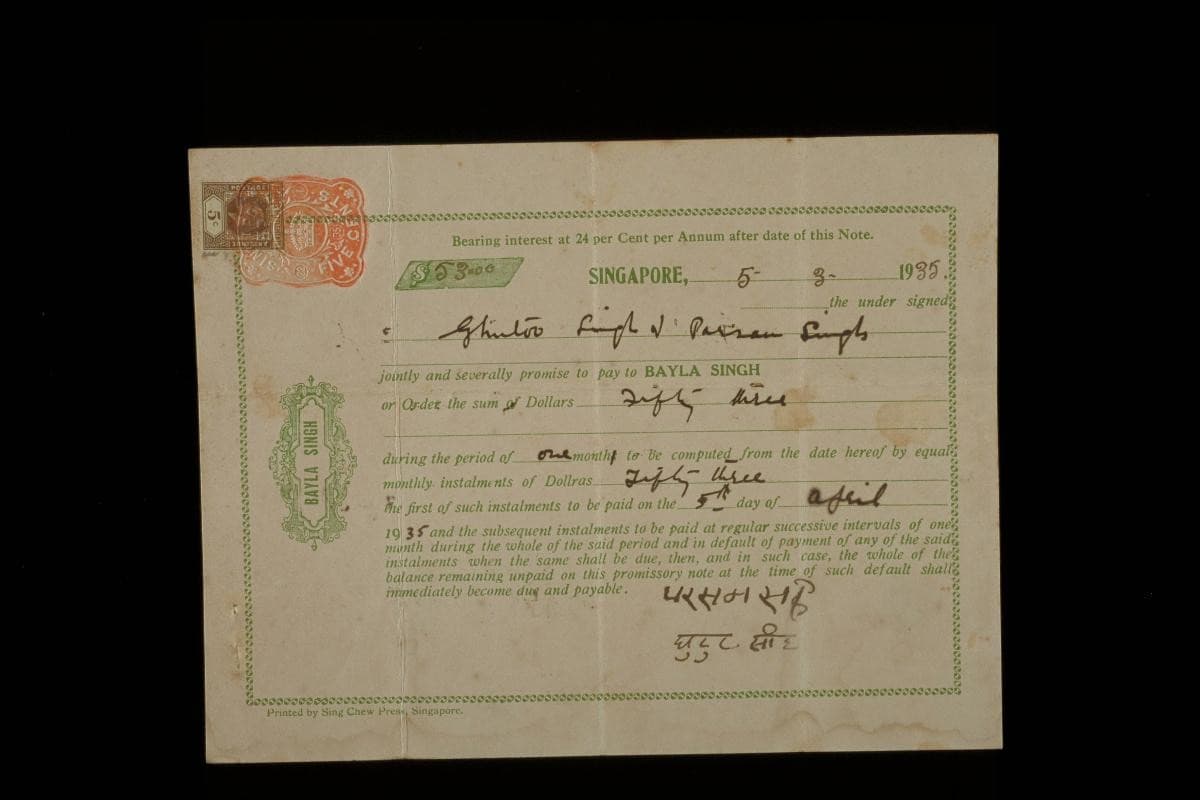 POSTAGE
5c
FIVE CENTS
Bearing interest at 24 per Cent per Annum after date of this Note.
$ 53.00
SINGAPORE, 5- 3- 1935.
the under signed
Singh & Parsan Singh
jointly and severally promise to pay to BAYLA SINGH
or Order the sum of Dollars Fifty three
during the period of one month to be computed from the date hereof by equal
monthly instalments of Dollras Fifty three
the first of such instalments to be paid on the 5th day of April
1935 and the subsequent instalments to be paid at regular successive intervals of one
month during the whole of the said period and in default of payment of any of the said
instalments when the same shall be due, then, and in such case, the whole of the
balance remaining unpaid on this promissory note at the time of such default shall
immediately become due and payable.
BAYLA SINGH
परसन
Printed by Sing Chew Press, Singapore.